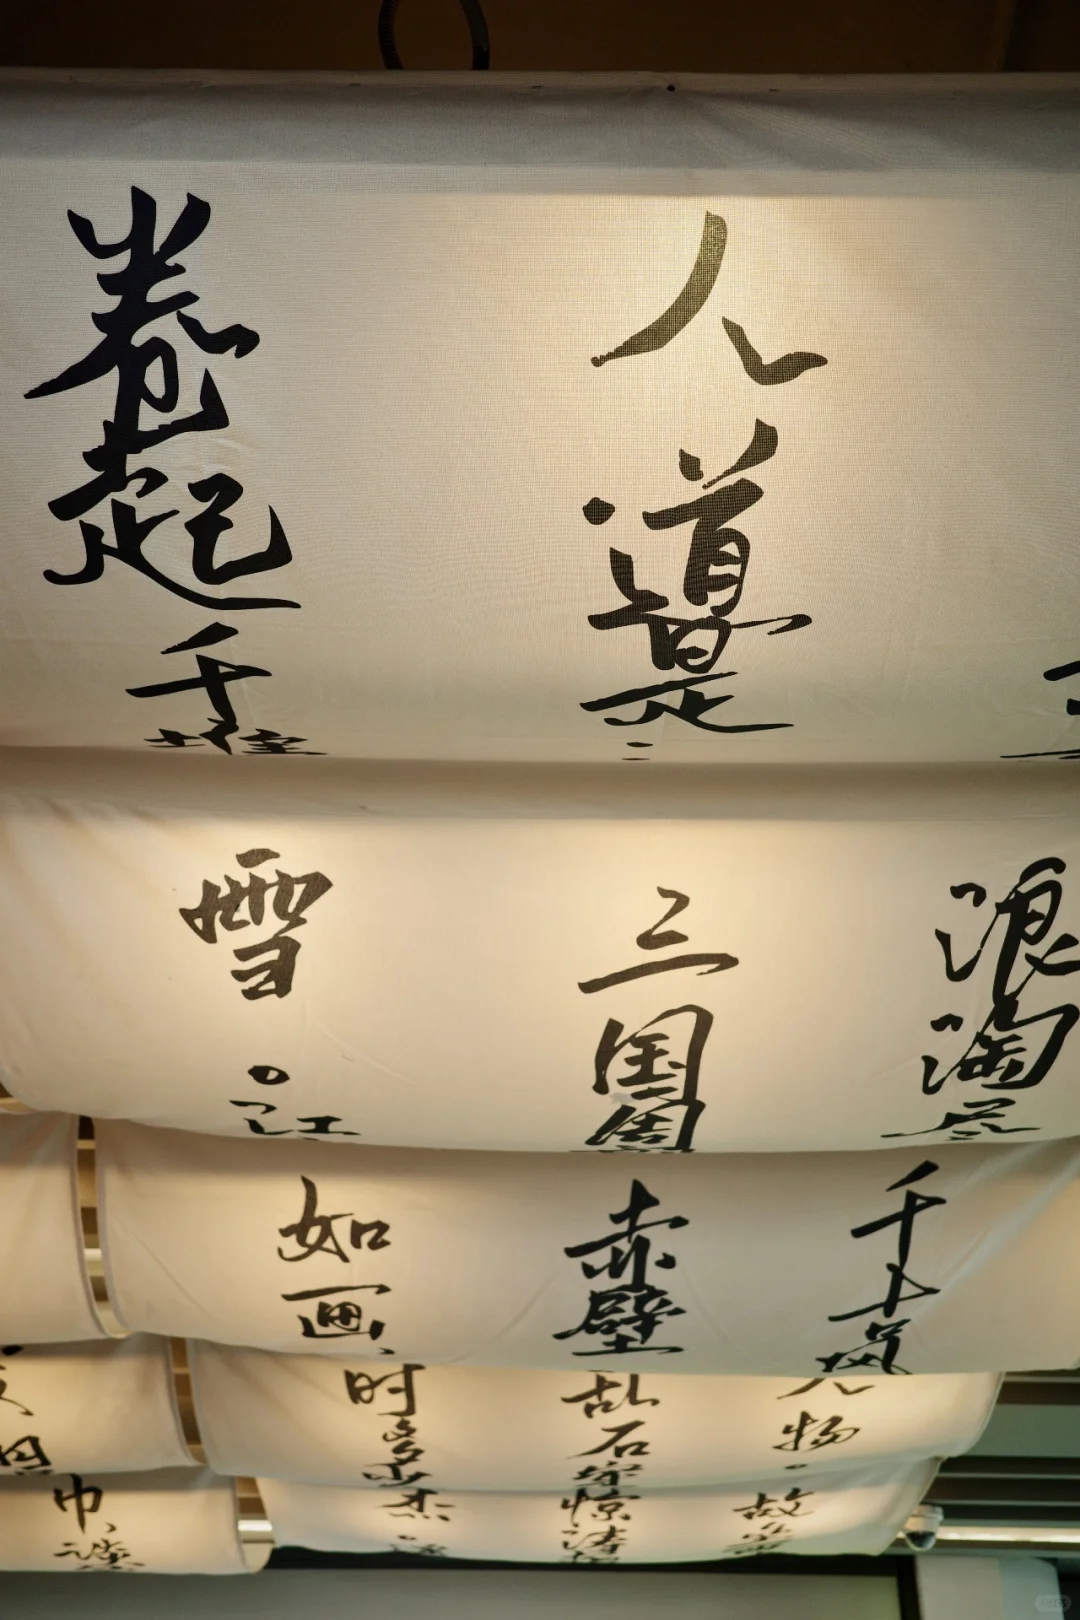 浪淘尽千古风人物。故垒
人道是三国周赤壁乱石穿惊涛
卷起千堆雪。江如画，时多少杰。
发羽巾，谈